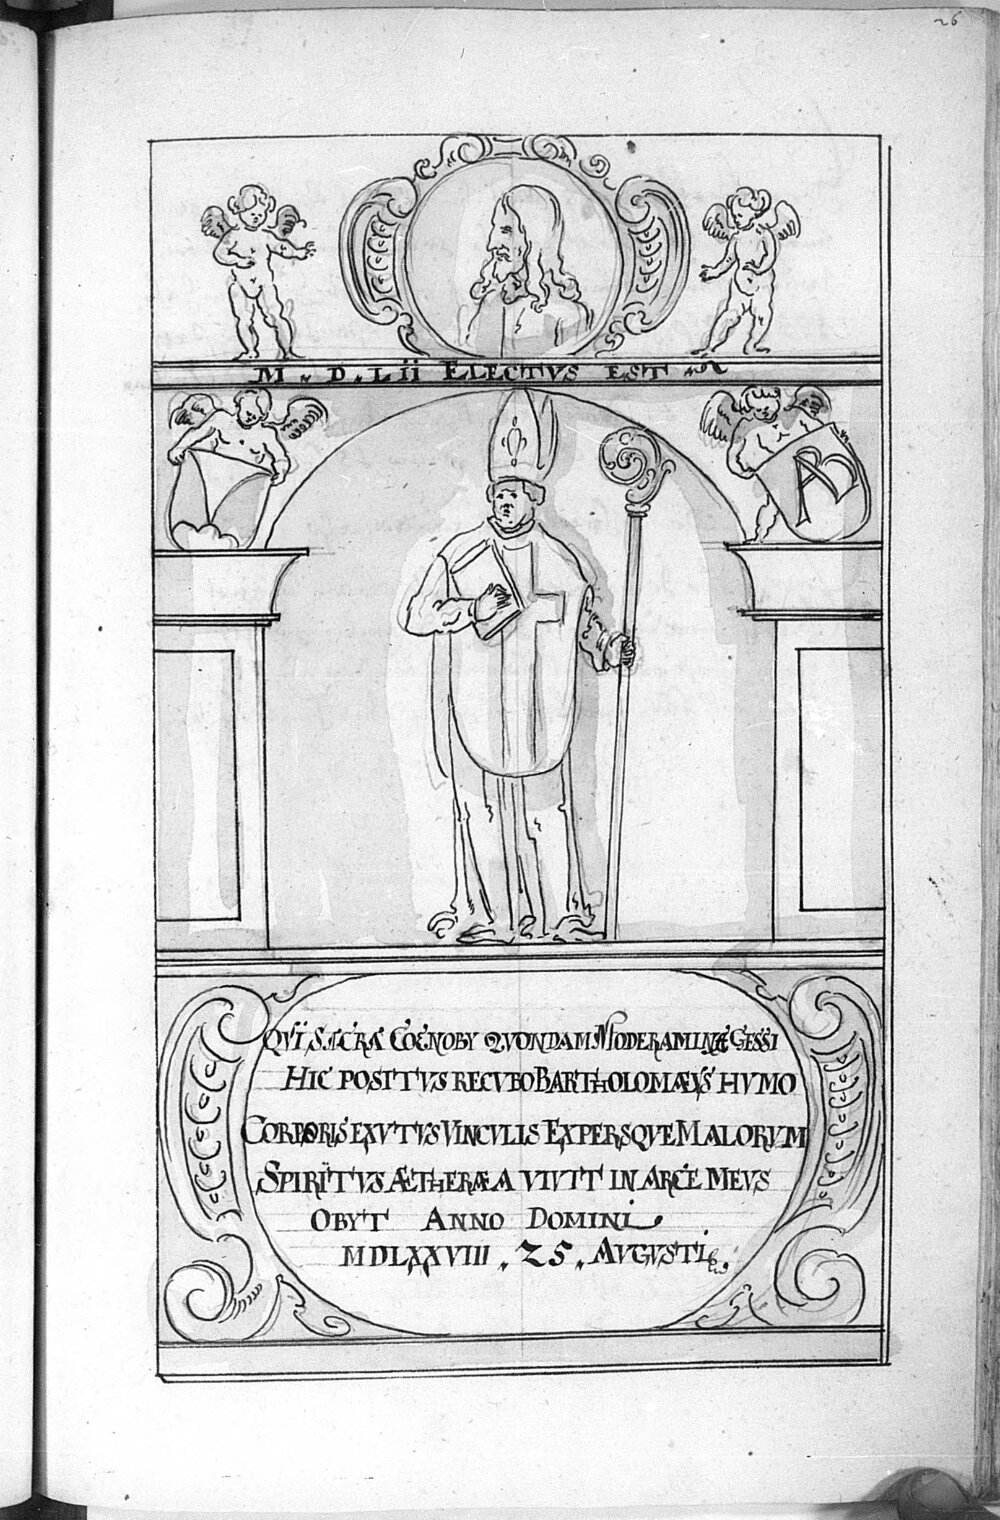 26
M . D . L ii ELECTVS EST
AB
QVI SACRA COENOBY QVONDAM MODERAMINA GESSI
HIC POSITVS RECVBO BARTHOLOMÆVS HVMO
CORPORIS EXVTVS VINCVLIS EXPERSQVE MALORVM
SPIRITVS ÆTHEREA VIVIT IN ARCE MEVS
OBYT ANNO DOMINI
MDLXXVIII . 25 . AVGVSTI